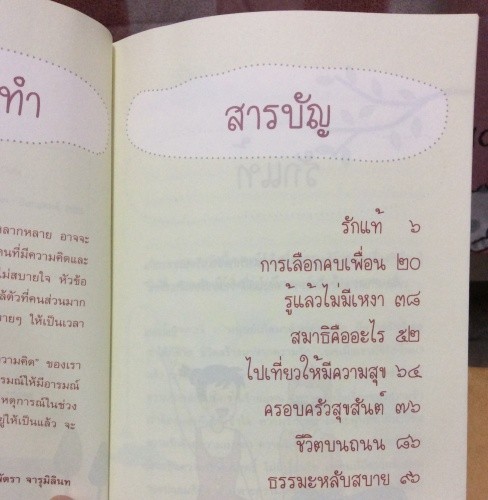 ทำ
ลากหลาย อาจจะ
คนที่มีความคิดและ
ไม่สบายใจ หัวข้อ
ล้ตัวที่คนส่วนมาก
ายๆ ให้เป็นเวลา
วามคิด" ของเรา
ารมณ์ให้มีอารมณ์
เหตุการณ์ในช่วง
ยู่ให้เป็นแล้ว จะ
จารุมิลินท
สารบัญ
รักแท้ ๖
การเลือกคบเพื่อน ๒๐
รู้แล้วไม่มีเหงา ๓๘
สมาธิคืออะไร ๕๒
ไปเที่ยวให้มีความสุข ๖๔
ครอบครัวสุขสันต์ ๗๖
ชีวิตบนถนน ๘๖
ธรรมะหลับสบาย ๙๖